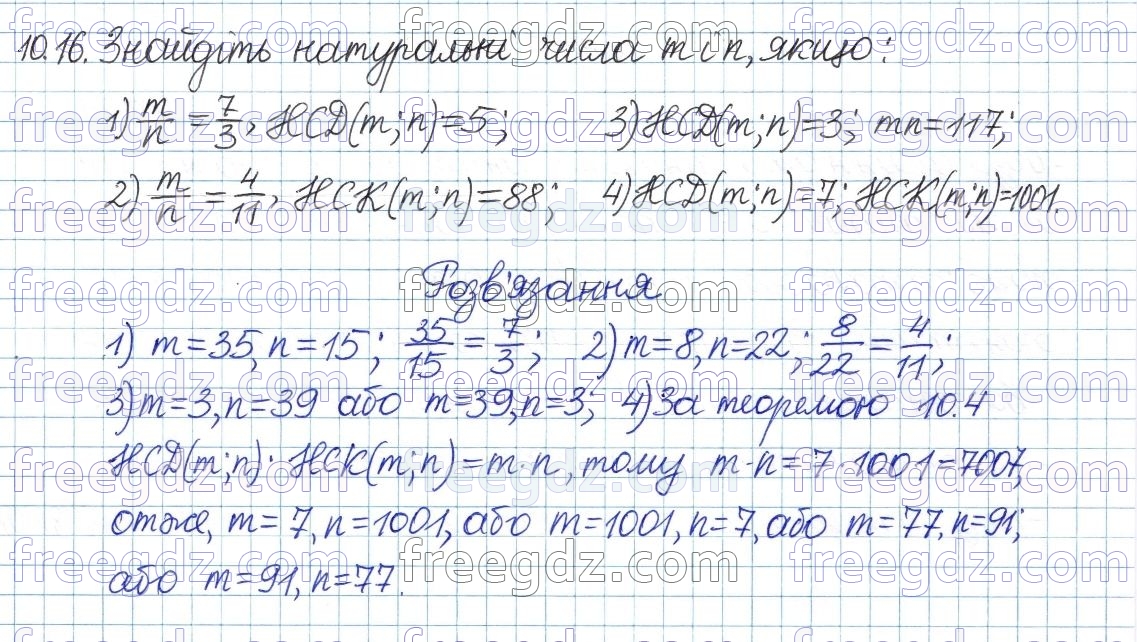 10.16. Знайдіть натуральні числа m і n, якщо:
1) m/n = 7/3, НСД(m; n) = 5; 3) НСД(m; n) = 3; mn = 117;
2) m/n = 4/11, НСК(m; n) = 88; 4) НСД(m; n) = 7; НСК(m; n) = 1001.
Розв'язання
1) m = 35, n = 15; 35/15 = 7/3; 2) m = 8, n = 22; 8/22 = 4/11;
3) m = 3, n = 39 або m = 39, n = 3; 4) За теоремою 10.4
НСД(m; n) · НСК(m; n) = m · n, тому m · n = 7 · 1001 = 7007,
отже, m = 7, n = 1001, або m = 1001, n = 7, або m = 77, n = 91;
або m = 91, n = 77.
freegdz.com